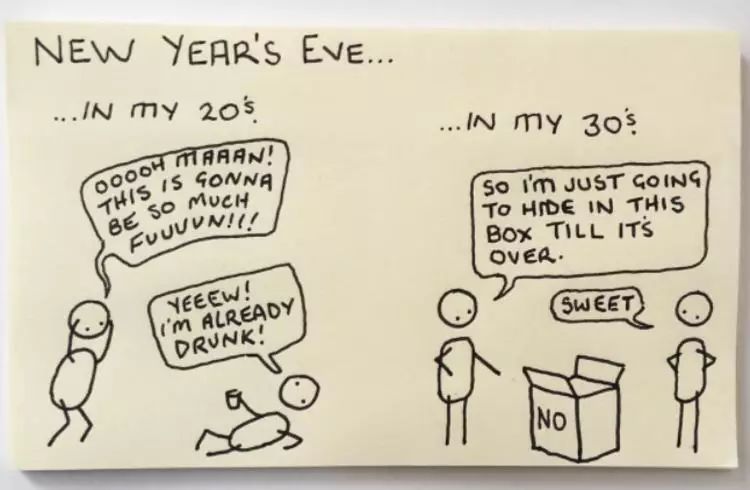 NEW YEAR'S EVE...
...IN MY 20's.
OOOOH MAAAN!
THIS IS GONNA
BE SO MUCH
FUUUUN!!!
YEEEW!
I'M ALREADY
DRUNK!
...IN MY 30's.
SO I'M JUST GOING
TO HIDE IN THIS
BOX TILL IT'S
OVER.
SWEET
NO